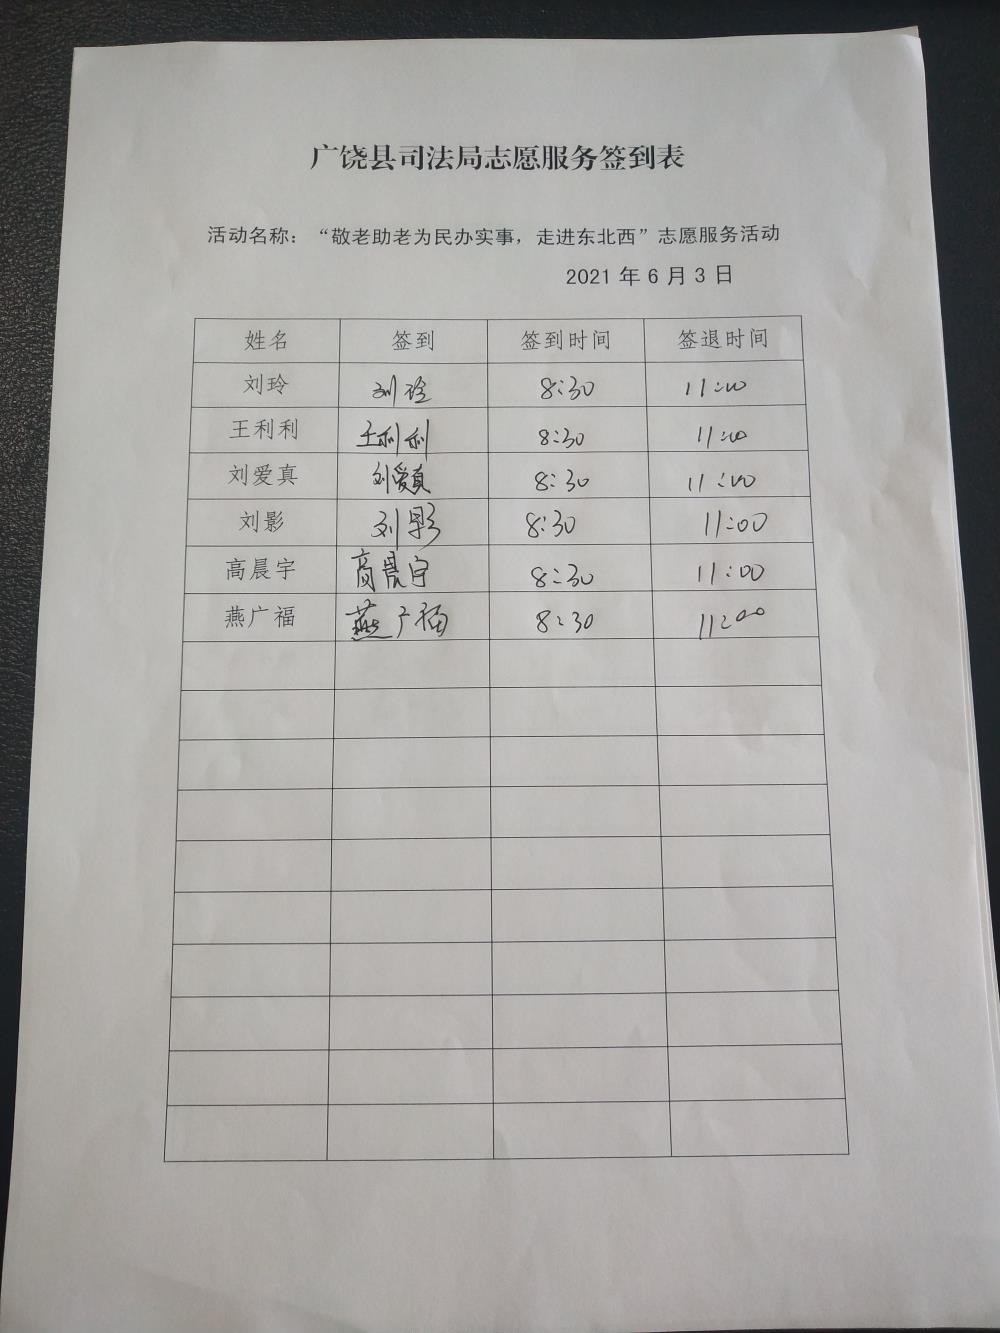 广饶县司法局志愿服务签到表
活动名称：“敬老助老为民办实事，走进东北西”志愿服务活动
2021 年 6 月 3 日
姓名 签到 签到时间 签退时间
刘玲 刘玲 8:30 11:00
王利利 王利利 8:30 11:00
刘爱真 刘爱真 8:30 11:00
刘影 刘影 8:30 11:00
高晨宇 高晨宇 8:30 11:00
燕广福 燕广福 8:30 11:00